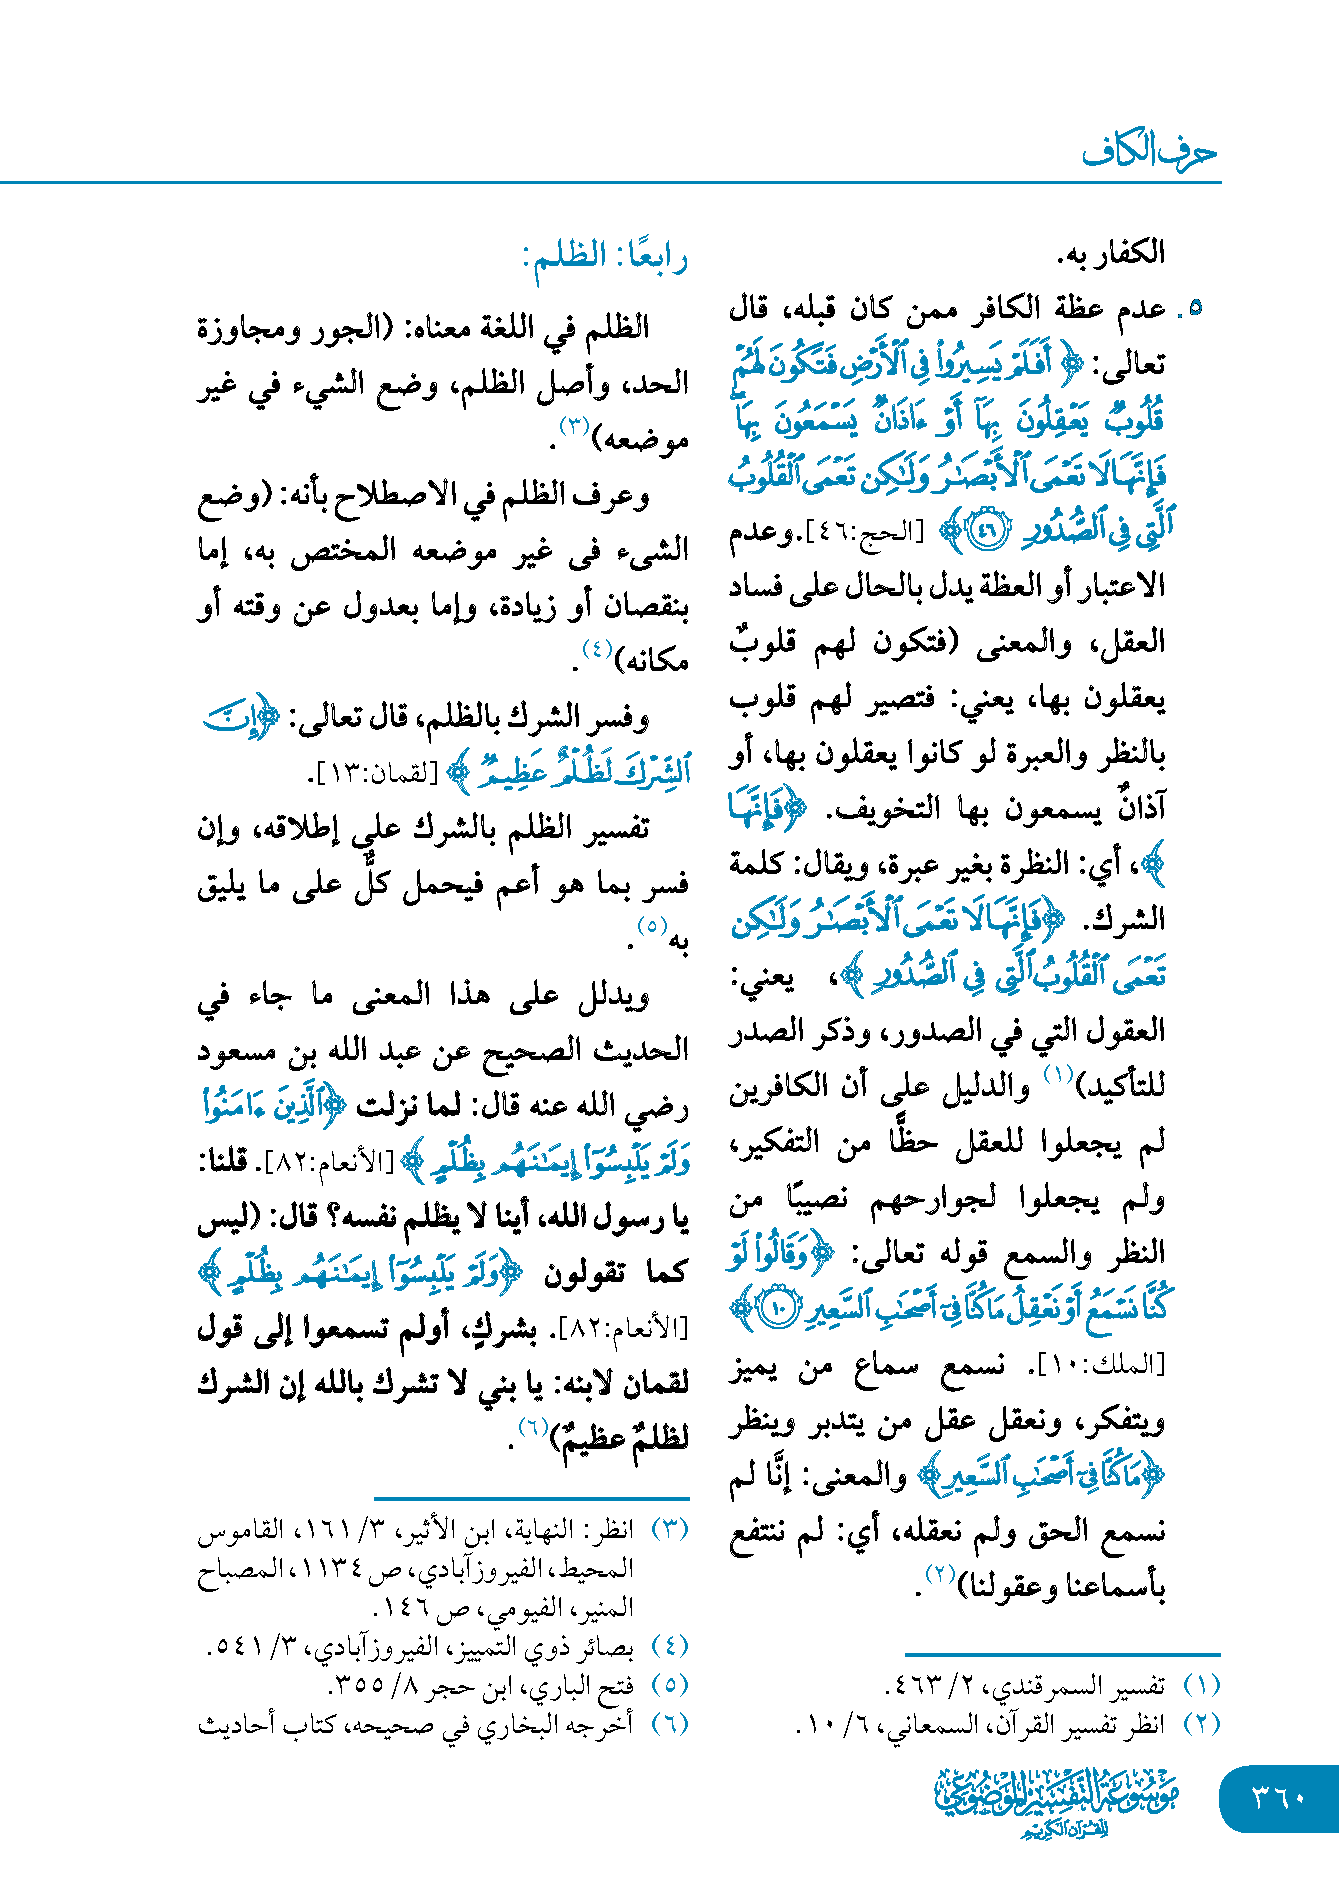 حرف الكاف
الكفار به.
٥. عدم عظة الكافر ممن كان قبله، قال
تعالى: ﴿أَفَلَمْ يَسِيرُوا۟ فِى ٱلْأَرْضِ فَتَكُونَ لَهُمْ
قُلُوبٌ يَعْقِلُونَ بِهَآ أَوْ ءَاذَانٌ يَسْمَعُونَ بِهَا ۖ
فَإِنَّهَا لَا تَعْمَى ٱلْأَبْصَـٰرُ وَلَـٰكِن تَعْمَى ٱلْقُلُوبُ
ٱلَّتِى فِى ٱلصُّدُورِ ٤٦﴾ [الحج:٤٦]. وعدم
الاعتبار أو العظة يدل بالحال على فساد
العقل، والمعنى (فتكون لهم قلوبٌ
يعقلون بها، يعني: فتصير لهم قلوب
بالنظر والعبرة لو كانوا يعقلون بها، أو
آذانٌ يسمعون بها التخويف. ﴿فَإِنَّهَا
﴾، أي: النظرة بغير عبرة، ويقال: كلمة
الشرك. ﴿فَإِنَّهَا لَا تَعْمَى ٱلْأَبْصَـٰرُ وَلَـٰكِن
تَعْمَى ٱلْقُلُوبُ ٱلَّتِى فِى ٱلصُّدُورِ﴾، يعني:
العقول التي في الصدور، وذكر الصدر
للتأكيد)(١) والدليل على أن الكافرين
لم يجعلوا للعقل حظًّا من التفكير،
ولم يجعلوا لجوارحهم نصيبًا من
النظر والسمع قوله تعالى: ﴿وَقَالُوا۟ لَوْ
كُنَّا نَسْمَعُ أَوْ نَعْقِلُ مَا كُنَّا فِىٓ أَصْحَـٰبِ ٱلسَّعِيرِ ١٠﴾
[الملك:١٠]. نسمع سماع من يميز
ويتفكر، ونعقل عقل من يتدبر وينظر
﴿مَا كُنَّا فِىٓ أَصْحَـٰبِ ٱلسَّعِيرِ﴾ والمعنى: إنَّا لم
نسمع الحق ولم نعقله، أي: لم ننتفع
بأسماعنا وعقولنا)(٢).
(١) تفسير السمرقندي، ٢/ ٤٦٣.
(٢) انظر تفسير القرآن، السمعاني، ٦/ ١٠.
رابعًا: الظلم:
الظلم في اللغة معناه: (الجور ومجاوزة
الحد، وأصل الظلم، وضع الشيء في غير
موضعه)(٣).
وعرف الظلم في الاصطلاح بأنه: (وضع
الشىء فى غير موضعه المختص به، إما
بنقصان أو زيادة، وإما بعدول عن وقته أو
مكانه)(٤).
وفسر الشرك بالظلم، قال تعالى: ﴿إِنَّ
ٱلشِّرْكَ لَظُلْمٌ عَظِيمٌ﴾ [لقمان:١٣].
تفسير الظلم بالشرك على إطلاقه، وإن
فسر بما هو أعم فيحمل كلٌّ على ما يليق
به(٥).
ويدلل على هذا المعنى ما جاء في
الحديث الصحيح عن عبد الله بن مسعود
رضي الله عنه قال: لما نزلت ﴿ٱلَّذِينَ ءَامَنُوا۟
وَلَمْ يَلْبِسُوٓا۟ إِيمَـٰنَهُم بِظُلْمٍ﴾ [الأنعام:٨٢]. قلنا:
يا رسول الله، أينا لا يظلم نفسه؟ قال: (ليس
كما تقولون ﴿وَلَمْ يَلْبِسُوٓا۟ إِيمَـٰنَهُم بِظُلْمٍ﴾
[الأنعام:٨٢]. بشركٍ، أولم تسمعوا إلى قول
لقمان لابنه: يا بني لا تشرك بالله إن الشرك
لظلمٌ عظيمٌ)(٦).
(٣) انظر: النهاية، ابن الأثير، ٣/ ١٦١، القاموس
المحيط، الفيروزآبادي، ص ١١٣٤، المصباح
المنير، الفيومي، ص ١٤٦.
(٤) بصائر ذوي التمييز، الفيروزآبادي، ٣/ ٥٤١.
(٥) فتح الباري، ابن حجر ٨/ ٣٥٥.
(٦) أخرجه البخاري في صحيحه، كتاب أحاديث
موسوعة التفسير الموضوعي
للقرآن الكريم
٣٦٠